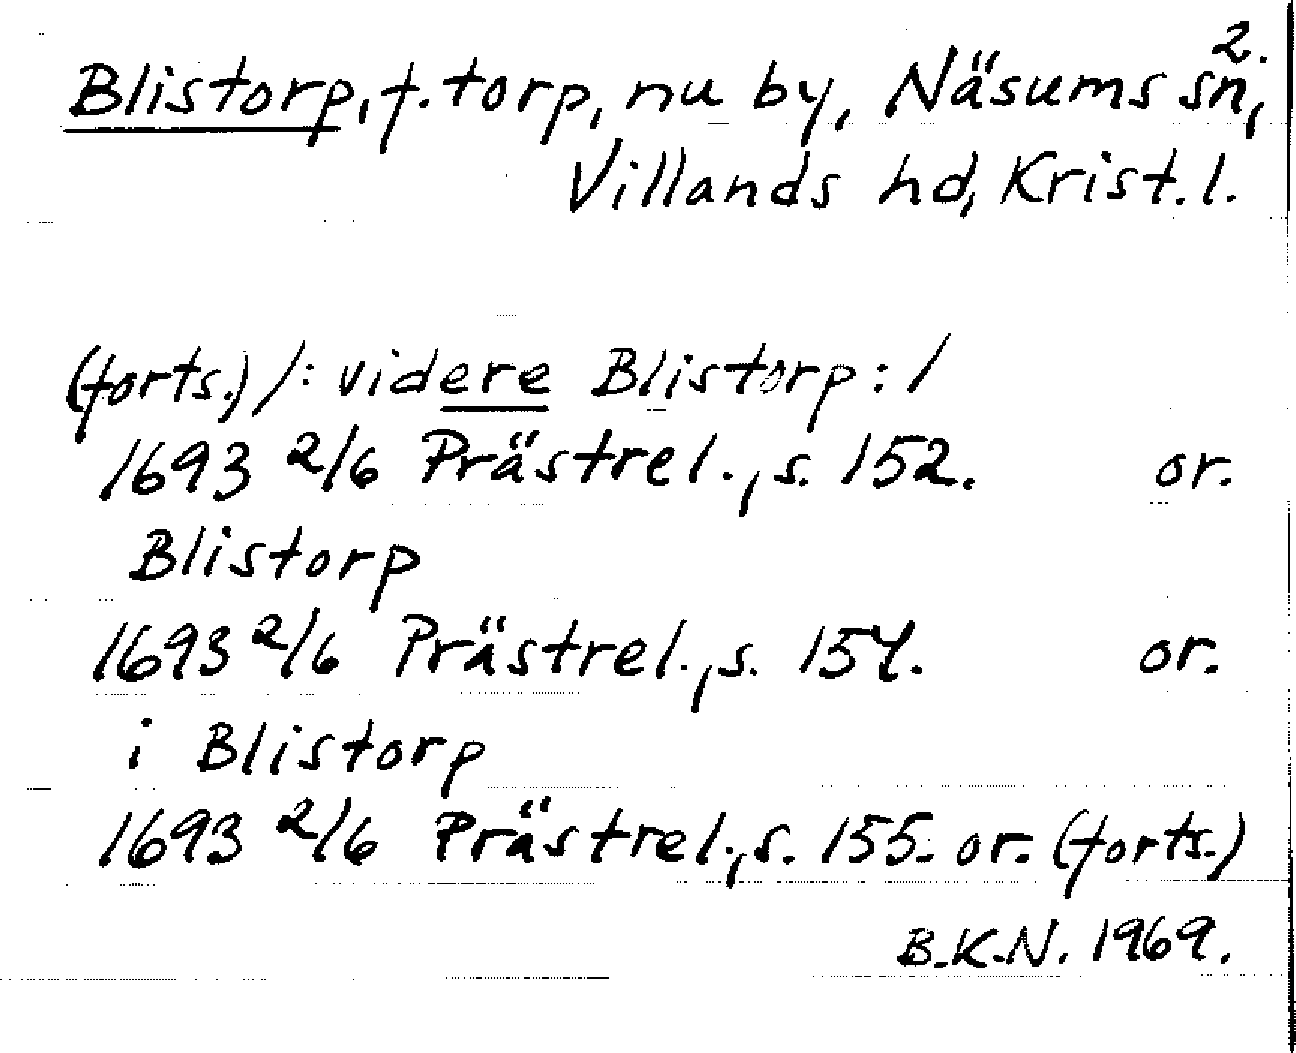 2.
Blistorp, f. torp, nu by, Näsums sn,
Villands hd, Krist. l.
(forts.) /: videre Blistorp : /
1693 2/6 Prästrel., s. 152. or.
Blistorp
1693 2/6 Prästrel., s. 154. or.
i Blistorp
1693 2/6 Prästrel., s. 155. or. (forts.)
B.K.N. 1969.